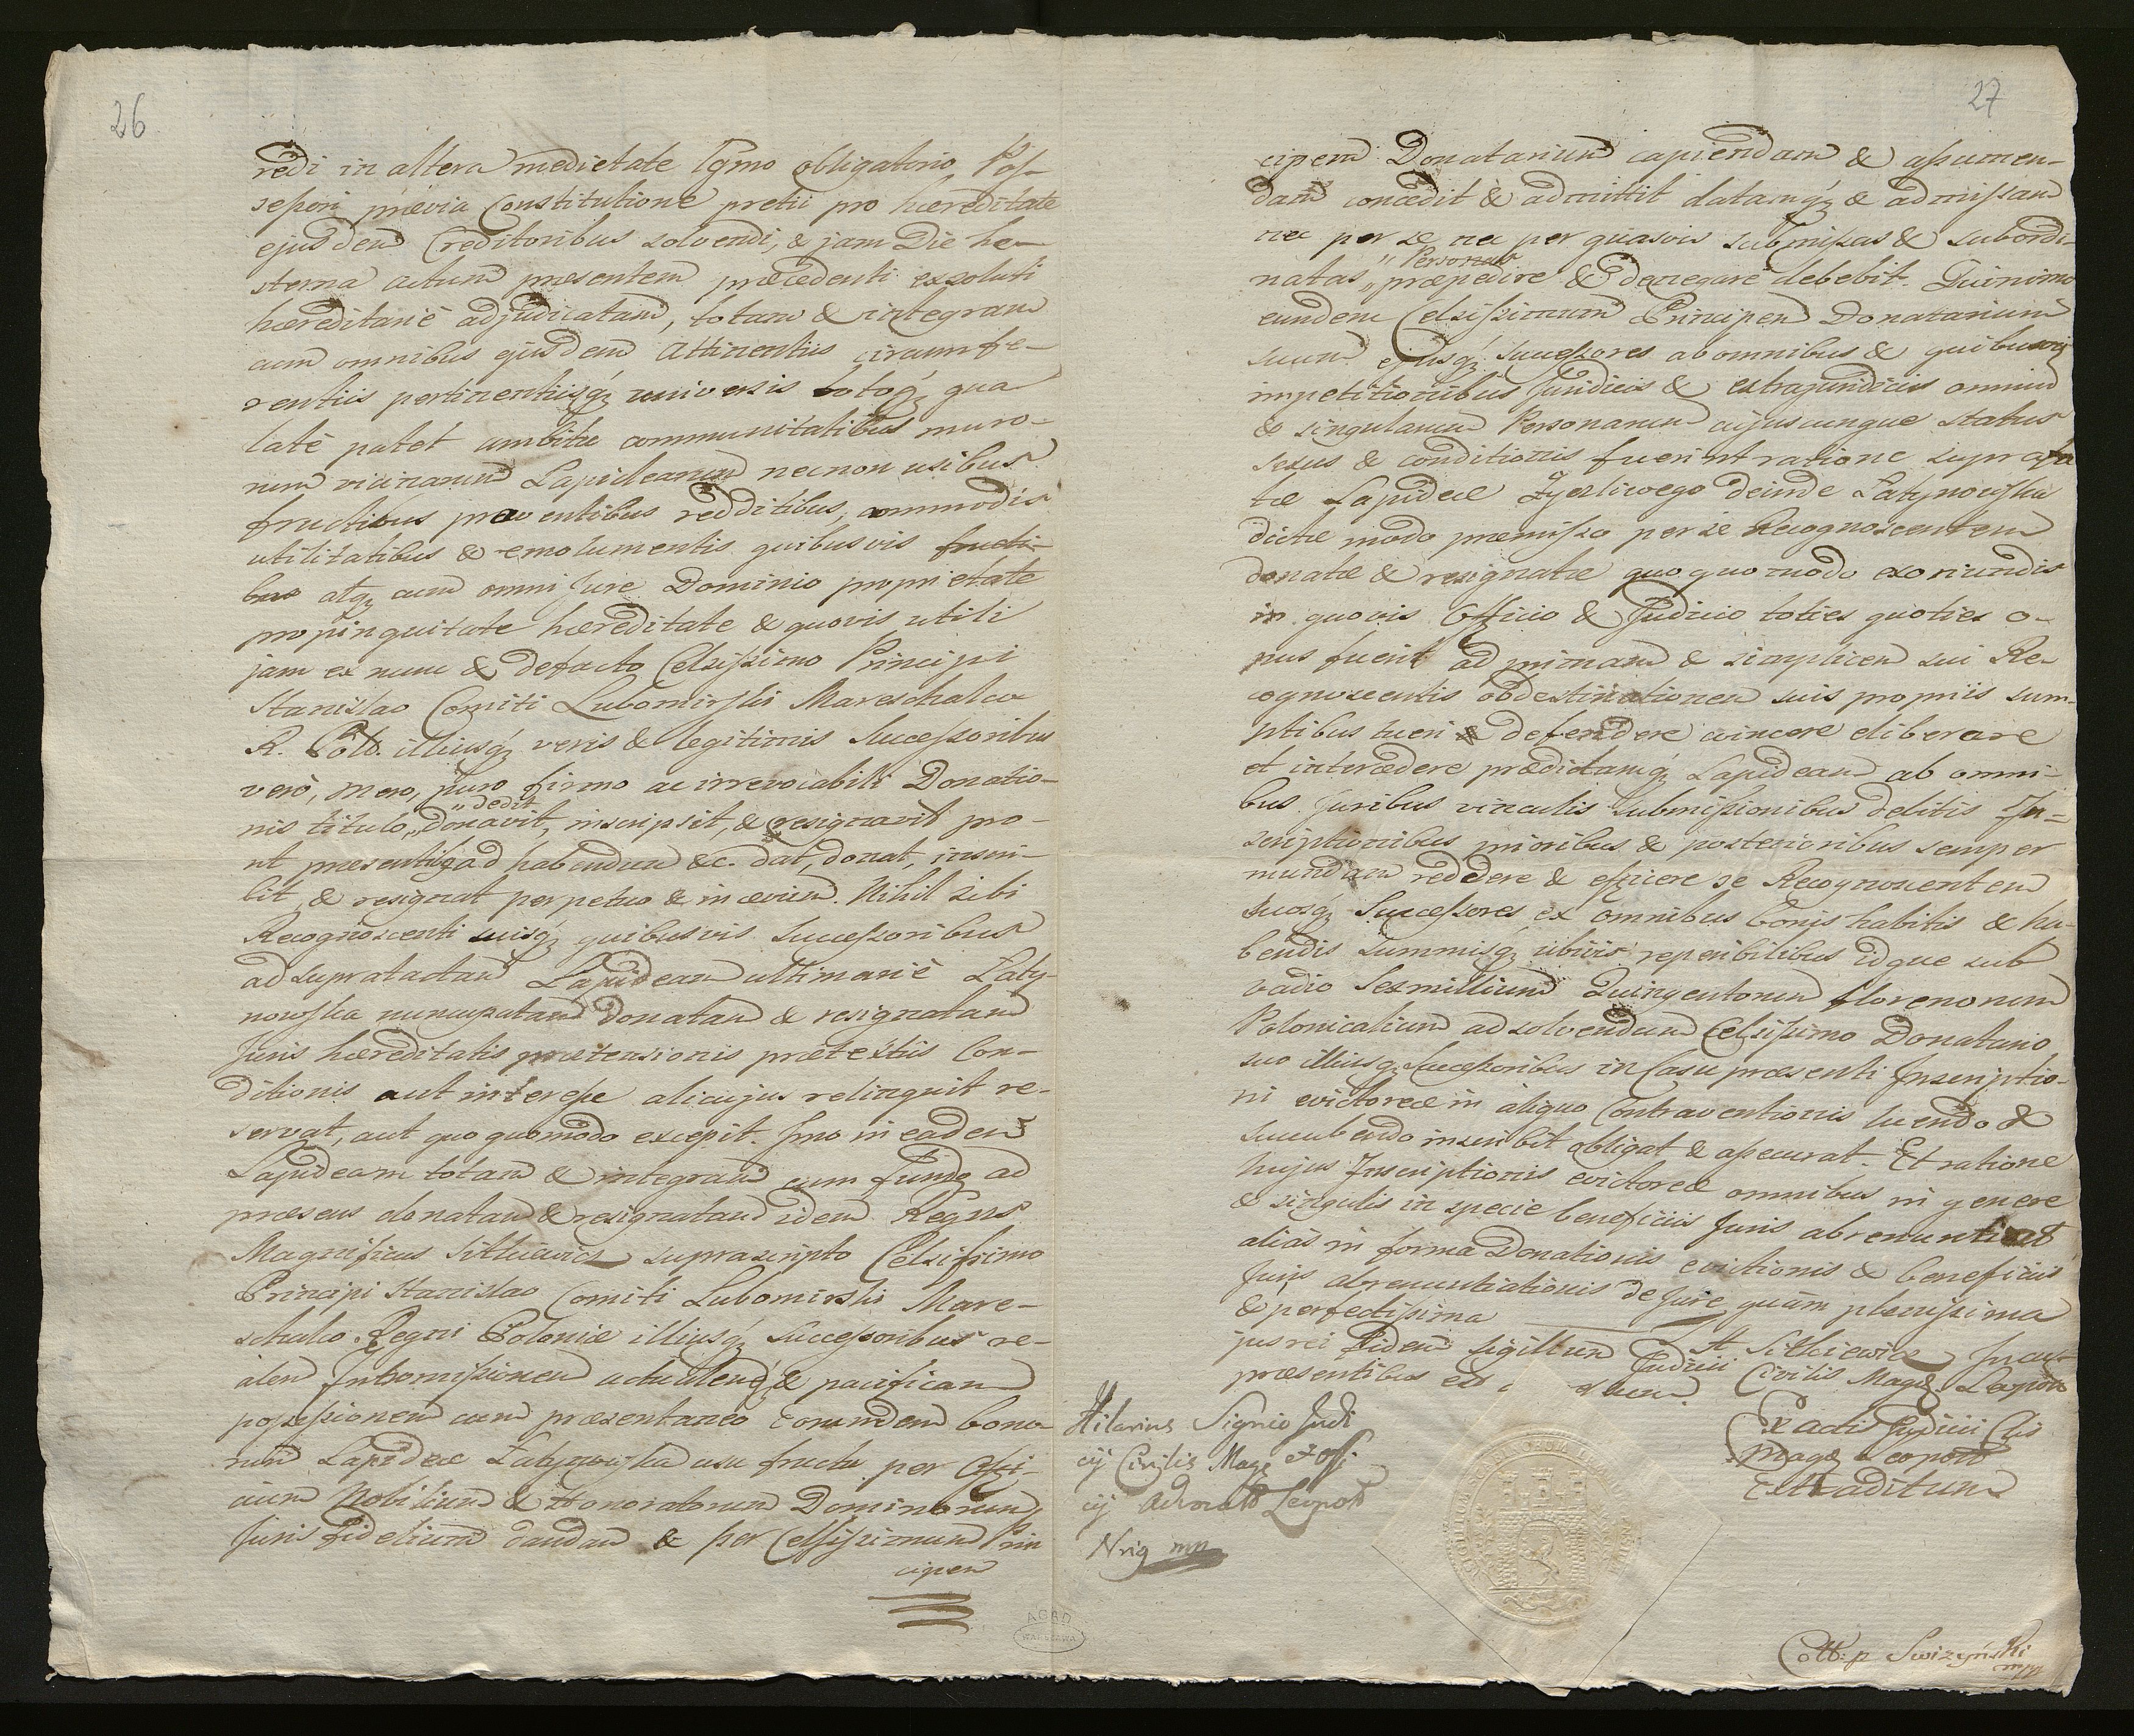 26
redi in altera medietate Tgmo obligatorio Pos-
sessori praevia Constitutione pretii pro haereditate
ejusdem Creditoribus solvendi, & jam Die he-
sterna actum praesentem praecedenti exsoluti
haereditariè adjudicatam, totam & integram
cum omnibus ejusdem Attinentiis circumfe-
rentiis pertinentiisq; universis totoq; qua
latè patet ambitu communitatibus muro-
rum vicinarum Lapidearum necnon usibus
fructibus proventibus redditibus, commodis
utilitatibus & emolumentis quibusvis fructi-
bus atq; cum omni Jure Dominio proprietate
propinquitate haereditate & quovis utili
jam ex nunc & defacto Celsissimo Principi
Stanislao Comiti Lubomirski Mareschalco
R. Pol. illiusq; veris & legitimis Successoribus
verò, mero, puro firmo ac irrevocabili Donatio-
„ dedit
nis titulo, „ donavit, inscripsit, & resignavit pro-
ut praesentib9 ad habendum &c. dat, donat, inscri-
bit, & resignat perpetuo & in aevum. Nihil sibi
Recognoscenti suisq; quibusvis Successoribus
ad supratactam Lapideam ultimariè Laty-
nowska nuncupatam Donatam & resignatam
Juris haereditatis praetensionis praetextûs Con-
ditionis aut interesse alicujus relinquit re-
servat, aut quoquomodo excepit. Imo in eadem
Lapideam totam & integram cum fundo ad
praesens donatam & resignatam idem Regns
Magnificus Sitkiewicz suprascripto Celsissimo
Principi Stanislao Comiti Lubomirski Mare-
schalco Regni Poloniae illiusq; Successoribus re-
alem Intromissionem actualemq; & pacificam
possessionem cum praesentaneo eorundem bono-
rum Lapideae Latynowska usu fructu per Offi-
cium Nobilium & Honoratorum Dominorum
Juris fidelium dandam & per Celsissimum Prin
cipem
AGAD
WARSZAWA
27
cipem Donatarium capiendam & assumen-
dam concedit & admittit datamq; & admissam
nec per se nec per quasvis submissas & subordi-
„ Personas
natas „ praepedire & denegare debebit. Quinimo
eundem Celsissimum Principem Donatarium
suum ejusq; Successores ab omnibus & quibusvis
impetitionibus Juridicis & extrajuridicis omnium
& singularum Personarum cujuscunque status
sexus & conditionis fuerint ratione suprafa
tae Lapideae Zyczliwego deinde Latynowska
dictae modo praemisso per se Recognoscentem
donatae & resignatae quoquo modo exoriundis
in quovis Officio & Judicio toties quoties o-
pus fuerit ad primam & simplicem sui Re-
cognoscentis obdestinationem suis propriis sum-
ptibus tueri & defendere evincere eliberare
et intercedere praedictamq; Lapideam ab omni-
bus Juribus vinculis Submissionibus debitis In-
scriptionibus prioribus & posterioribus semper
mundam reddere & efficere se Recognoscentem
suosq; Successores ex omnibus bonis habitis & ha-
bendis summisq; ubivis reperibilibus idque sub
vadio Sexmillium Quingentorum florenorum
Polonicalium ad solvendum Celsissimo Donatario
suo illiusq; Successoribus in Casu praesenti Inscriptio-
ni evictoreae in aliquo Contraventionis luendo &
succubendo inscribit obligat & assecurat. Et ratione
hujus Inscriptionis evictoreae omnibus in genere
& singulis in specie beneficiis Juris abrenuntiat
aliàs in forma Donationis evictionis & beneficiis
Juris abrenuntiationis de Jure quàm plenissima
& perfectissima
St Sitkiewicz In cu-
jus rei fidem Sigillum Judicii Civilis Magd. Leopol
praesentibus est
Hilarius Signio Judi
cij Civilis Magd et Offi
cij Advocatt Leopol
Nrig mp
Ex actis Judicii Clis
Magd Leopol
Extraditum
Coll: p Swizyński
mpp